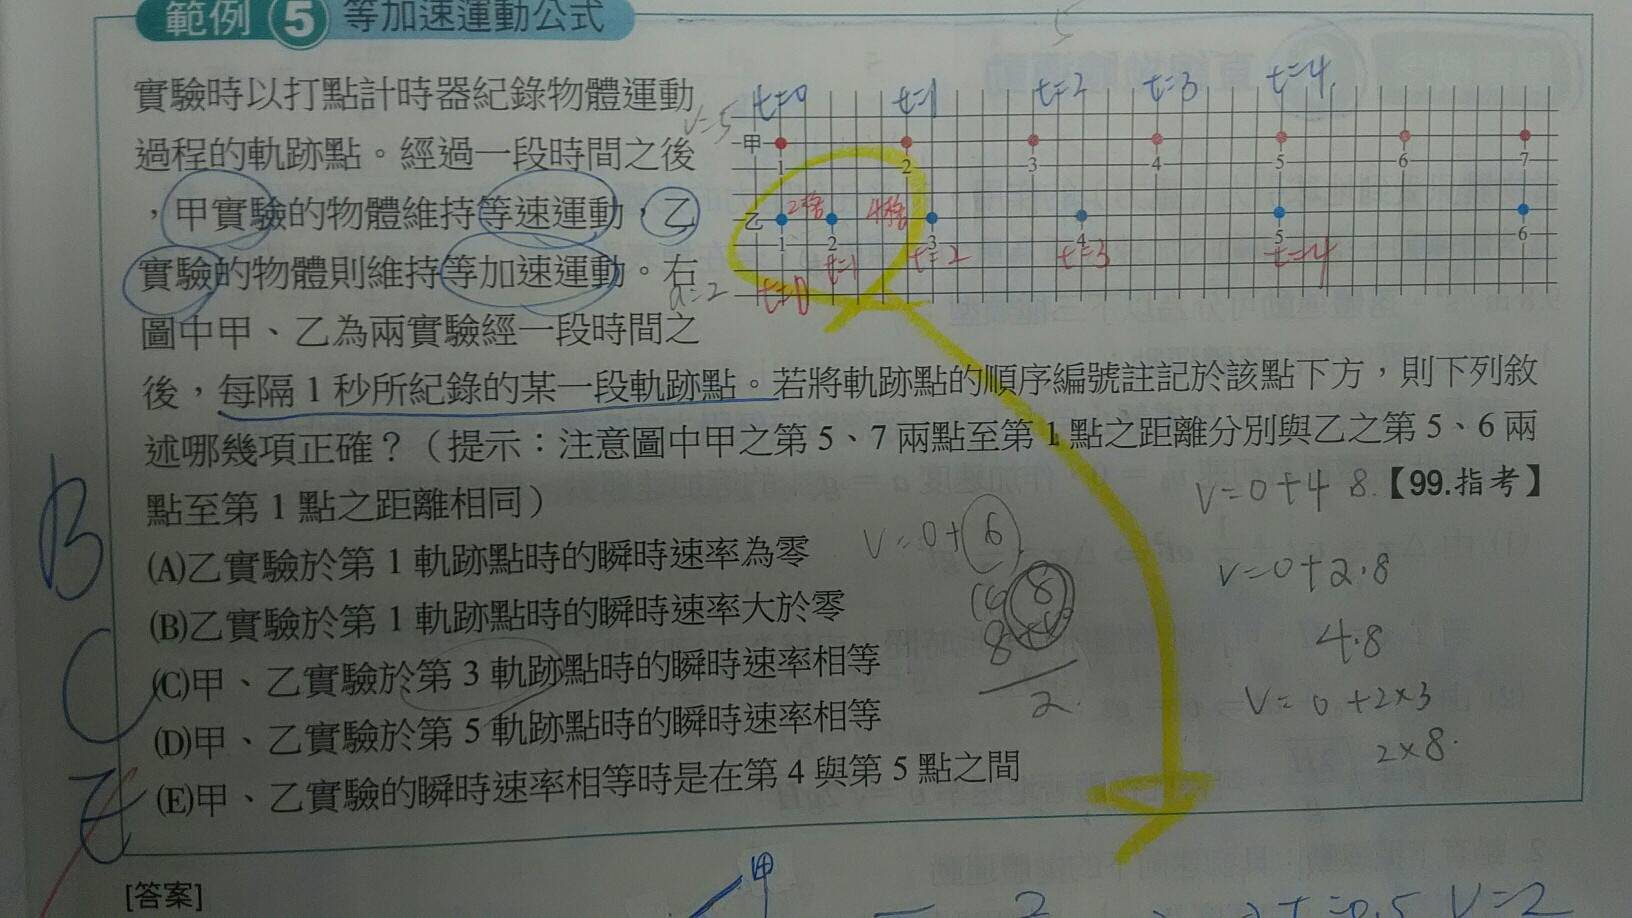 範例 5 等加速運動公式
實驗時以打點計時器紀錄物體運動
過程的軌跡點。經過一段時間之後
，甲實驗的物體維持等速運動，乙
實驗的物體則維持等加速運動。右
圖中甲、乙為兩實驗經一段時間之
後，每隔 1 秒所紀錄的某一段軌跡點。若將軌跡點的順序編號註記於該點下方，則下列敘
述哪幾項正確？（提示：注意圖中甲之第 5、7 兩點至第 1 點之距離分別與乙之第 5、6 兩
點至第 1 點之距離相同）
【99.指考】
t=0 t=1 t=2 t=3 t=4
v=5
甲
1 2 3 4 5 6 7
2格 4格
乙
1 2 3 4 5 6
t=0 t=1 t=2 t=3 t=4
a=2
(A)乙實驗於第 1 軌跡點時的瞬時速率為零
(B)乙實驗於第 1 軌跡點時的瞬時速率大於零
(C)甲、乙實驗於第 3 軌跡點時的瞬時速率相等
(D)甲、乙實驗於第 5 軌跡點時的瞬時速率相等
(E)甲、乙實驗的瞬時速率相等時是在第 4 與第 5 點之間
B
C
V=0+6
2
V=0+4 8
V=0+2.8
4.8
V=0+2×3
2×8
[答案]
甲
2
t=0.5 V=2